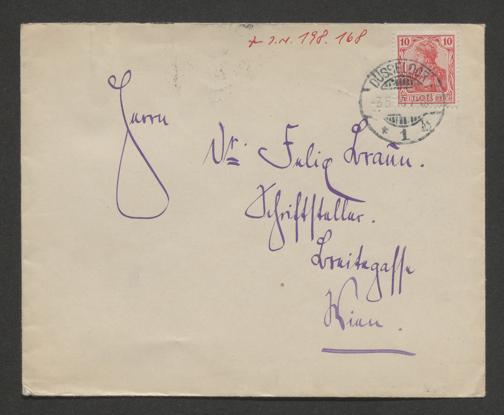 I.N. 198.168
10 10
DÜSSELDORF
DEUTSCHES REICH
* 1
Herrn
Dr. Felix Braun.
Schriftsteller.
Breitegasse
Wien.